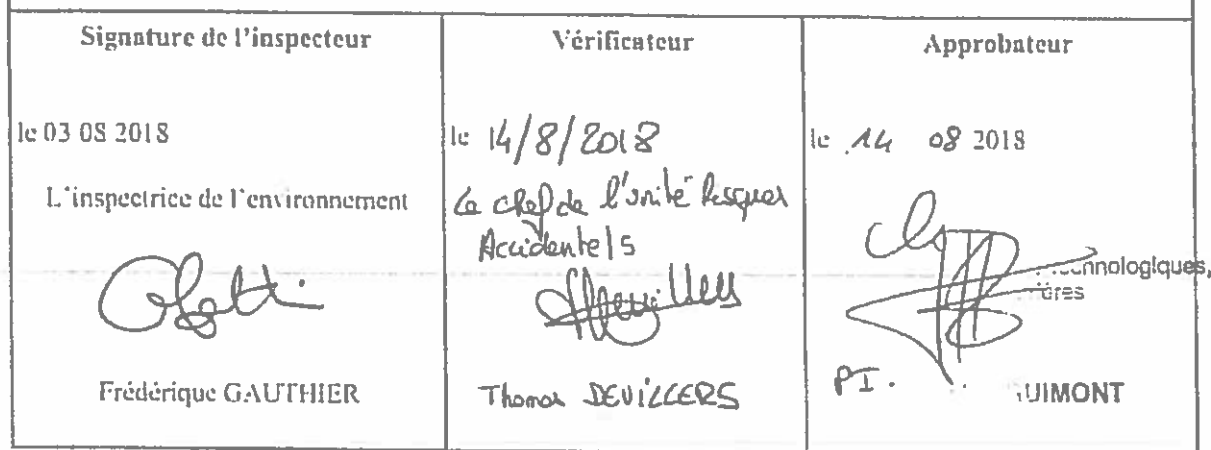 Signature de l'inspecteur
Vérificateur
Approbateur
le 03 08 2018
le 14/8/2018
le 14 08 2018
L'inspectrice de l'environnement
Le chef de l'Unité Risques
Accidentels
Frédérique GAUTHIER
Thomas DEVILLERS
PI.